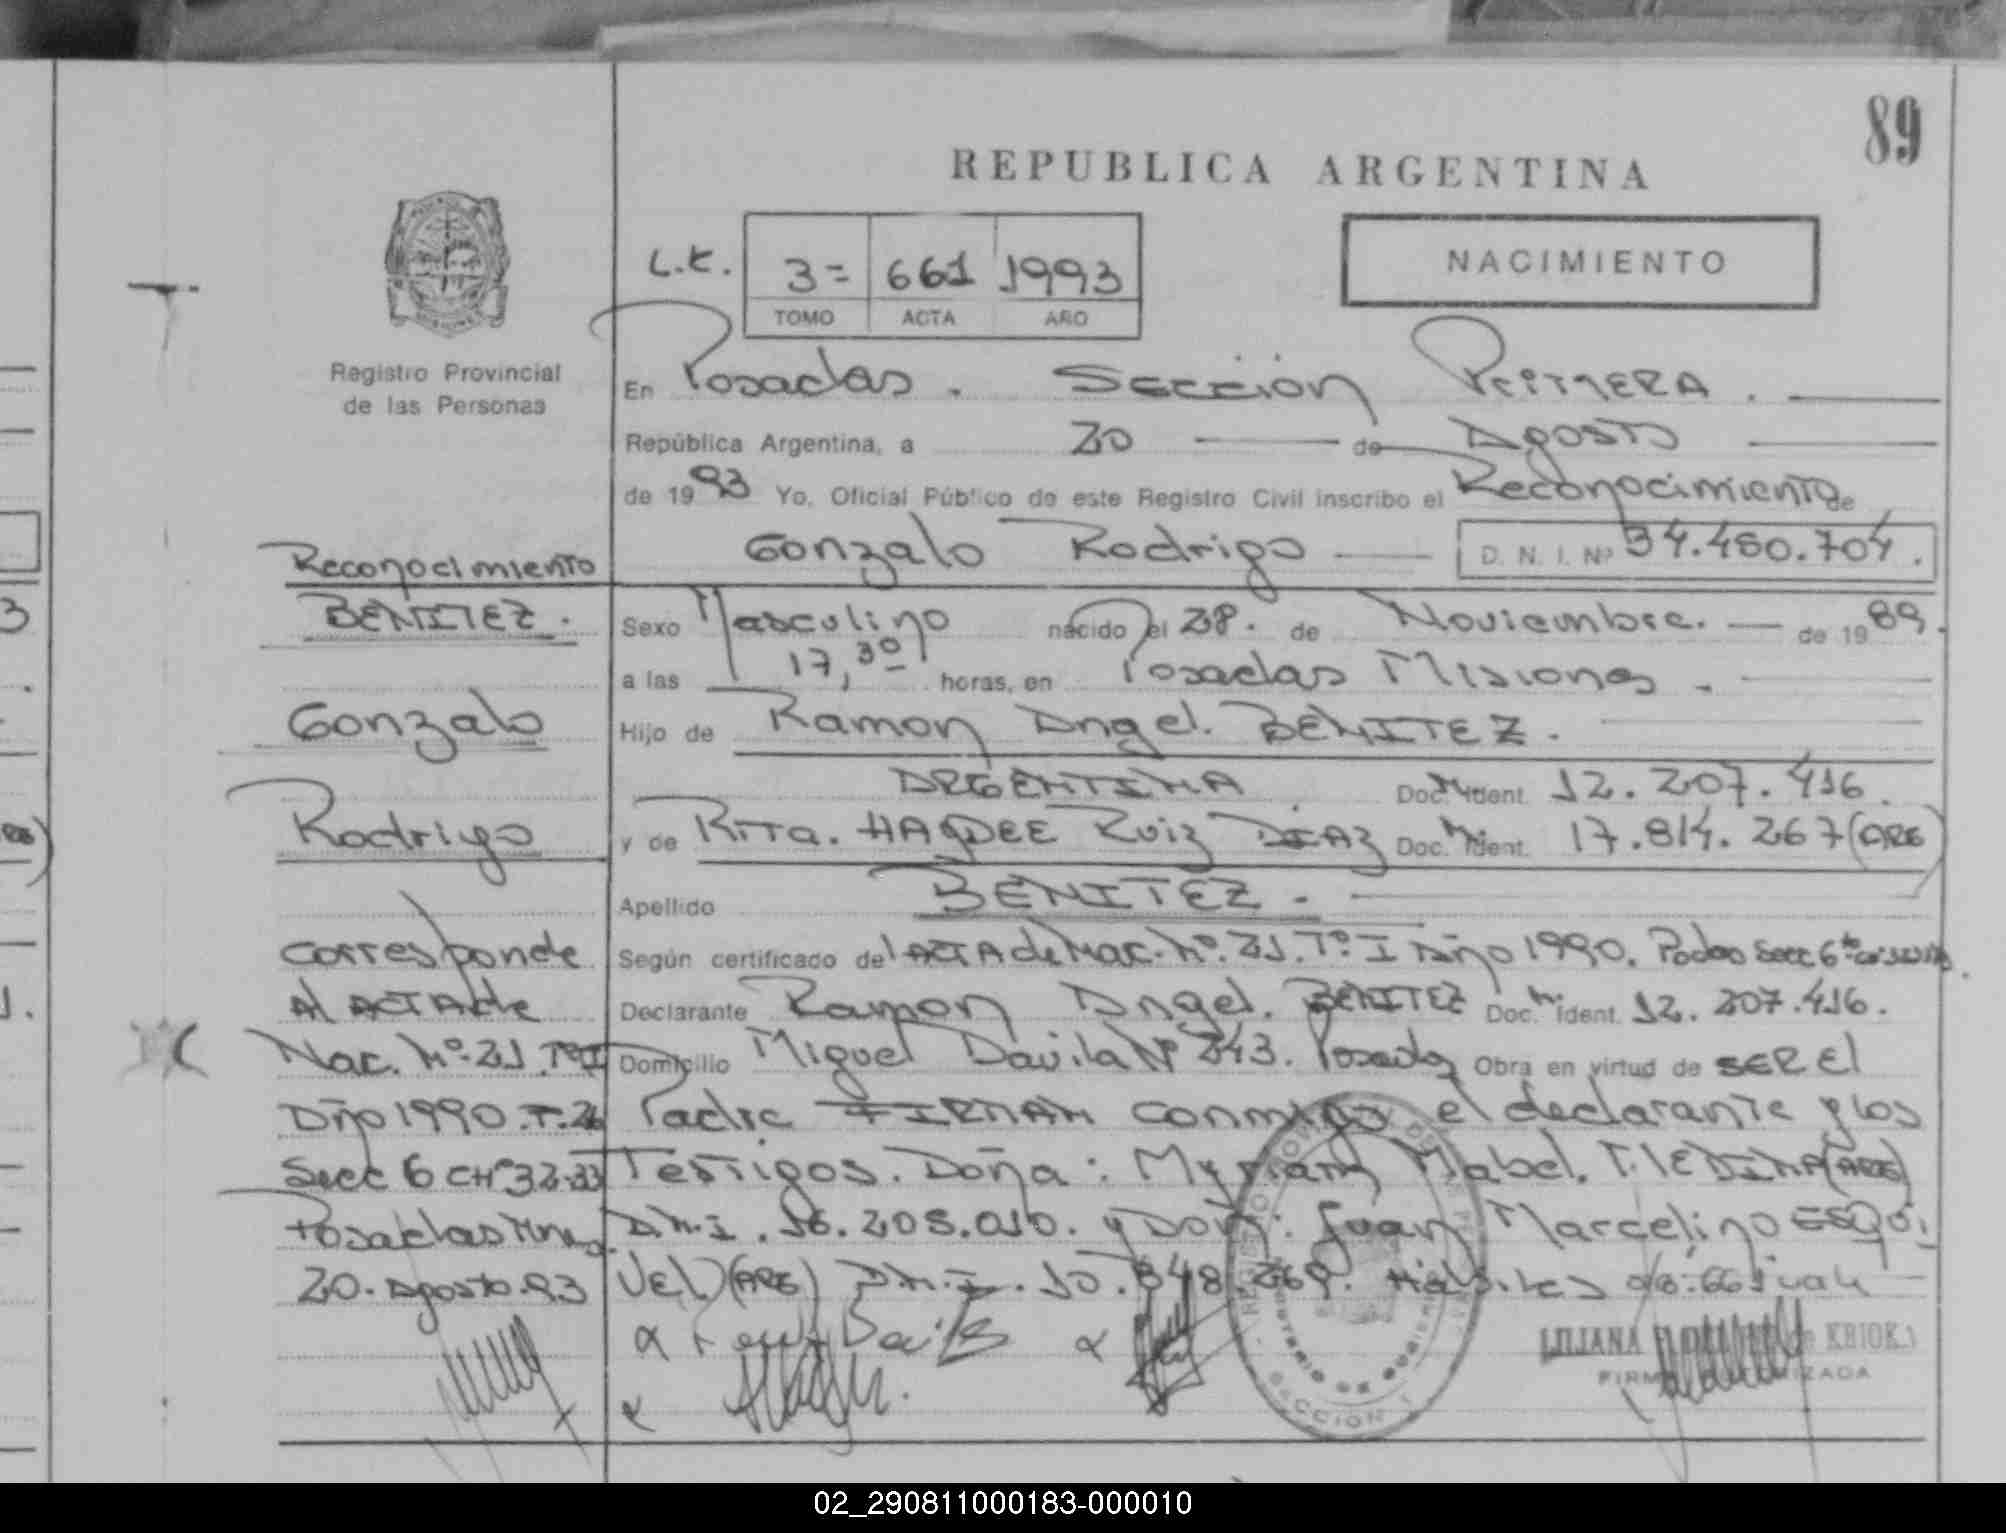 89
REPUBLICA ARGENTINA
NACIMIENTO
L.E. 3= 661 1993
TOMO ACTA AÑO
Registro Provincial
de las Personas
En Posadas. Sección Primera.
República Argentina, a 20 de Agosto
de 1993 Yo, Oficial Público de este Registro Civil inscribo el Reconocimiento de
Gonzalo Rodrigo D. N. I. Nº 34.480.704.
Reconocimiento
BENITEZ.
Gonzalo
Rodrigo
corresponde
Al ACTA de
Nac. Nº 21. Tº I
Año 1990. F. 26
Secc 6
Posadas Mnes
20. Agosto. 93
Sexo Masculino nacido el 28. de Noviembre. de 1989.
a las 17,30 horas, en Posadas Misiones.
Hijo de Ramon Angel. BENITEZ.
ARGENTINA Doc. M. Ident. 12.207.416.
y de Rita. HAYDEE Ruiz DIAZ Doc. M. Ident. 17.814.267 (ARG)
Apellido BENITEZ.
Según certificado del ACTA de Nac. Nº. 21. Tº. I Año 1990. Podas Secc 6ta
Declarante Ramon Angel. BENITEZ Doc. M. Ident. 12.207.416.
Domicilio Miguel Davila Nº 243. Posadas Obra en virtud de SER El
Padre FIRMAN conmigo el declarante y los
Testigos. Doña: Myriam Mabel. MEDINA (ARG)
D.N.I. 16.205.010. y Don: Juan Marcelino ESQUI
VEL (ARG) D.N.I. 10.848.269. Hábiles
LILIANA de
FIRMA AUTORIZADA
SECCION 1
02_290811000183-000010